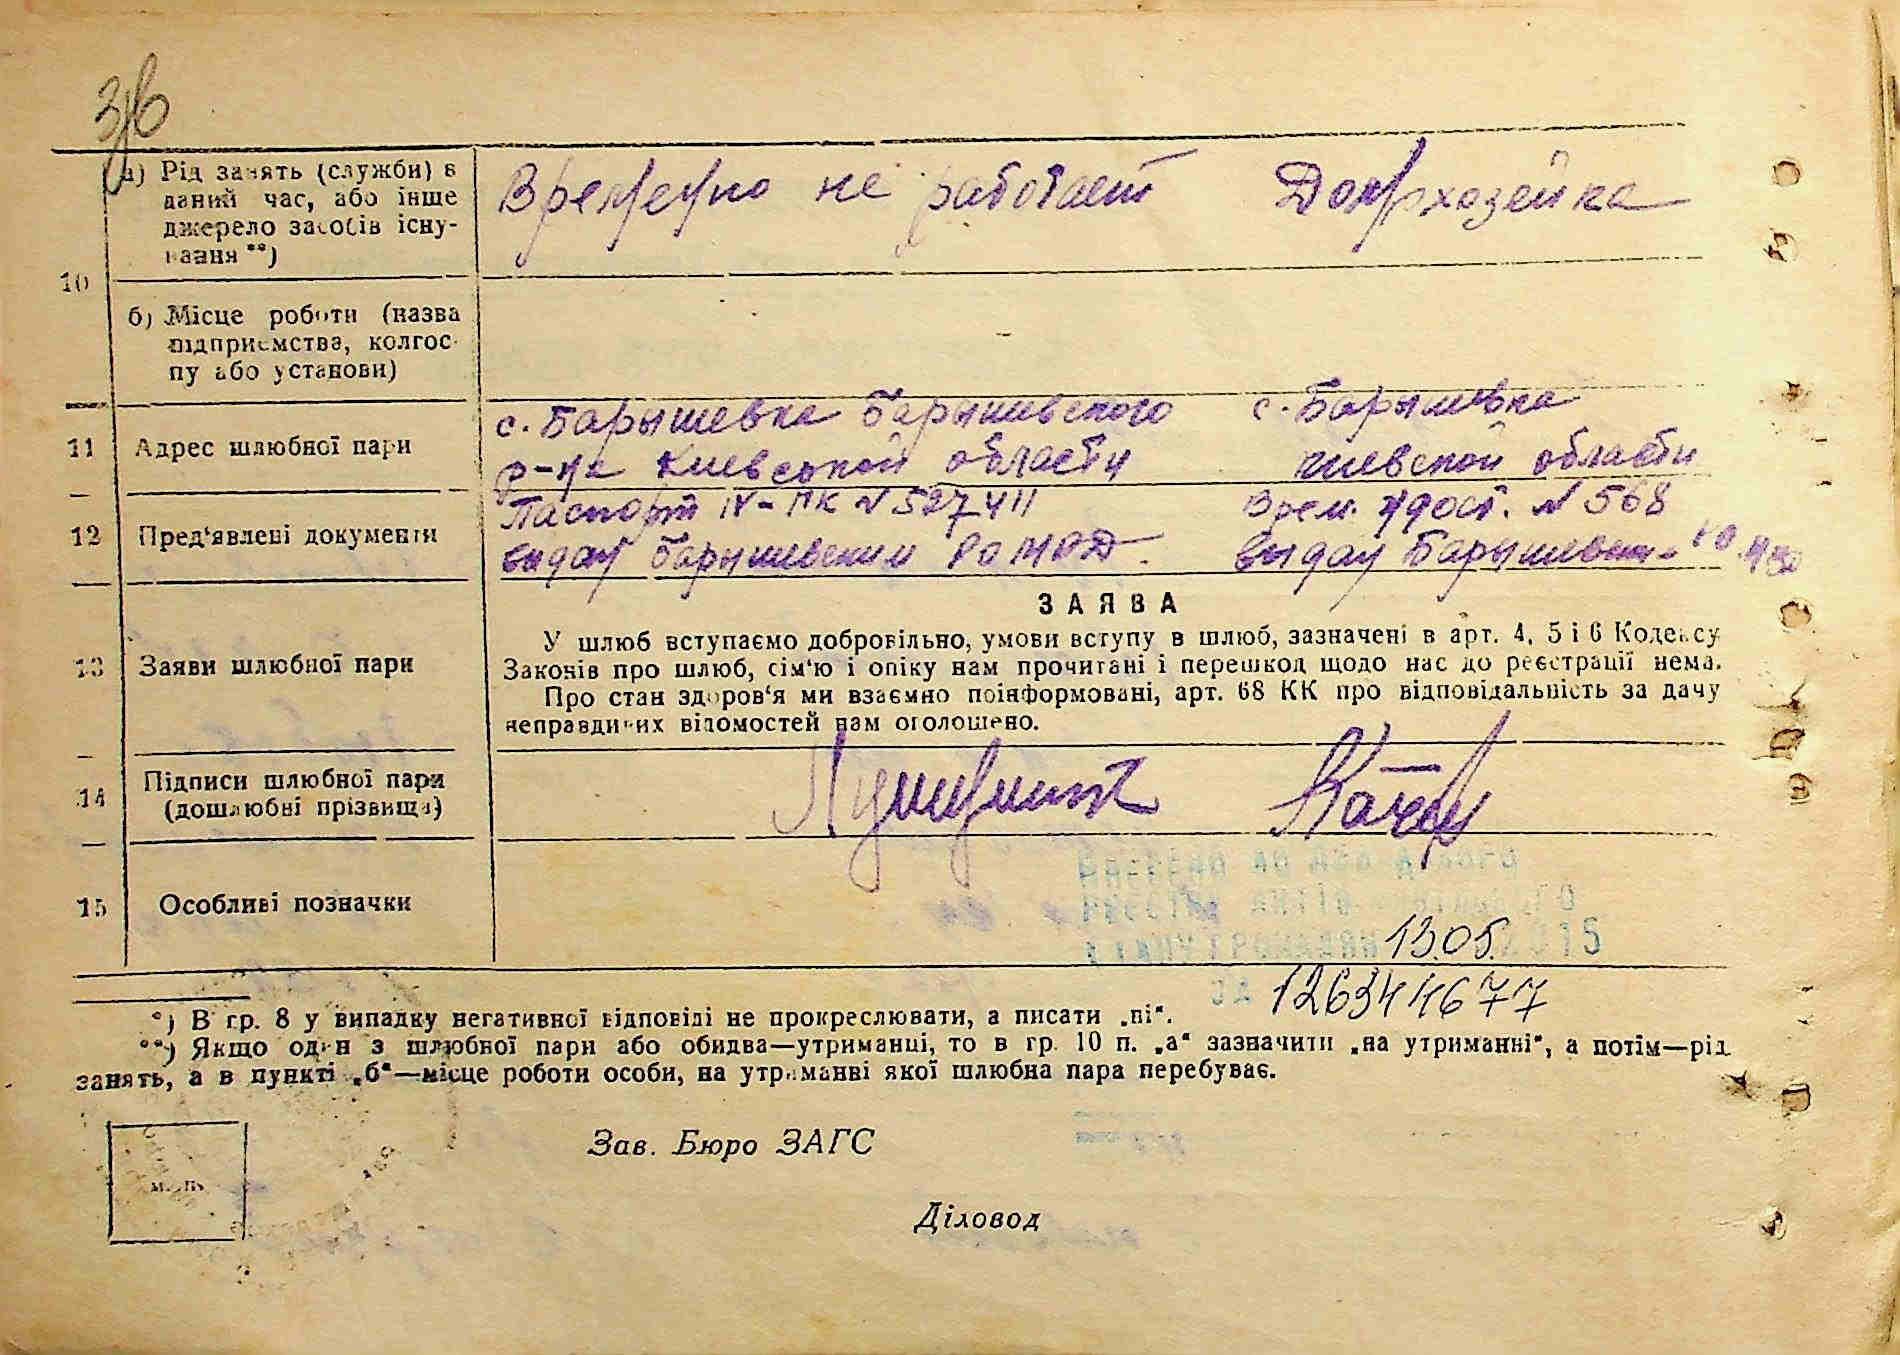 3/6
10
а) Рід занять (служби) в
даний час, або інше
джерело засобів існу-
вання **)
Временно не работает
Домохозяйка
б) Місце роботи (назва
підприємства, колгос-
пу або установи)
11
Адрес шлюбної пари
с. Барышевка Барышевского
р-на Киевской области
с. Барышевка
Киевской области
12
Пред'явлені документи
Паспорт IV-ПК №
выдан Барышевским РОМВД.
Врем. удост. № 568
выдан Барышевским
13
Заяви шлюбної пари
ЗАЯВА
У шлюб вступаємо добровільно, умови вступу в шлюб, зазначені в арт. 4, 5 і 6 Кодексу
Законів про шлюб, сім'ю і опіку нам прочитані і перешкод щодо нас до реєстрації нема.
Про стан здоров'я ми взаємно поінформовані, арт. 68 КК про відповідальність за дачу
неправдивих відомостей нам оголошено.
14
Підписи шлюбної пари
(дошлюбні прізвища)
15
Особливі позначки
ВНЕСЕНО ДО ДЕРЖАВНОГО
РЕЄСТРУ АКТІВ ЦИВІЛЬНОГО
СТАНУ ГРОМАДЯН 13.05. 2015
126344677
*) В гр. 8 у випадку негативної відповіді не прокреслювати, а писати „ні“.
**) Якщо один з шлюбної пари або обидва—утриманці, то в гр. 10 п. „а“ зазначити „на утриманні“, а потім—рід
занять, а в пункті „б“—місце роботи особи, на утриманні якої шлюбна пара перебуває.
м. п.
Зав. Бюро ЗАГС
Діловод